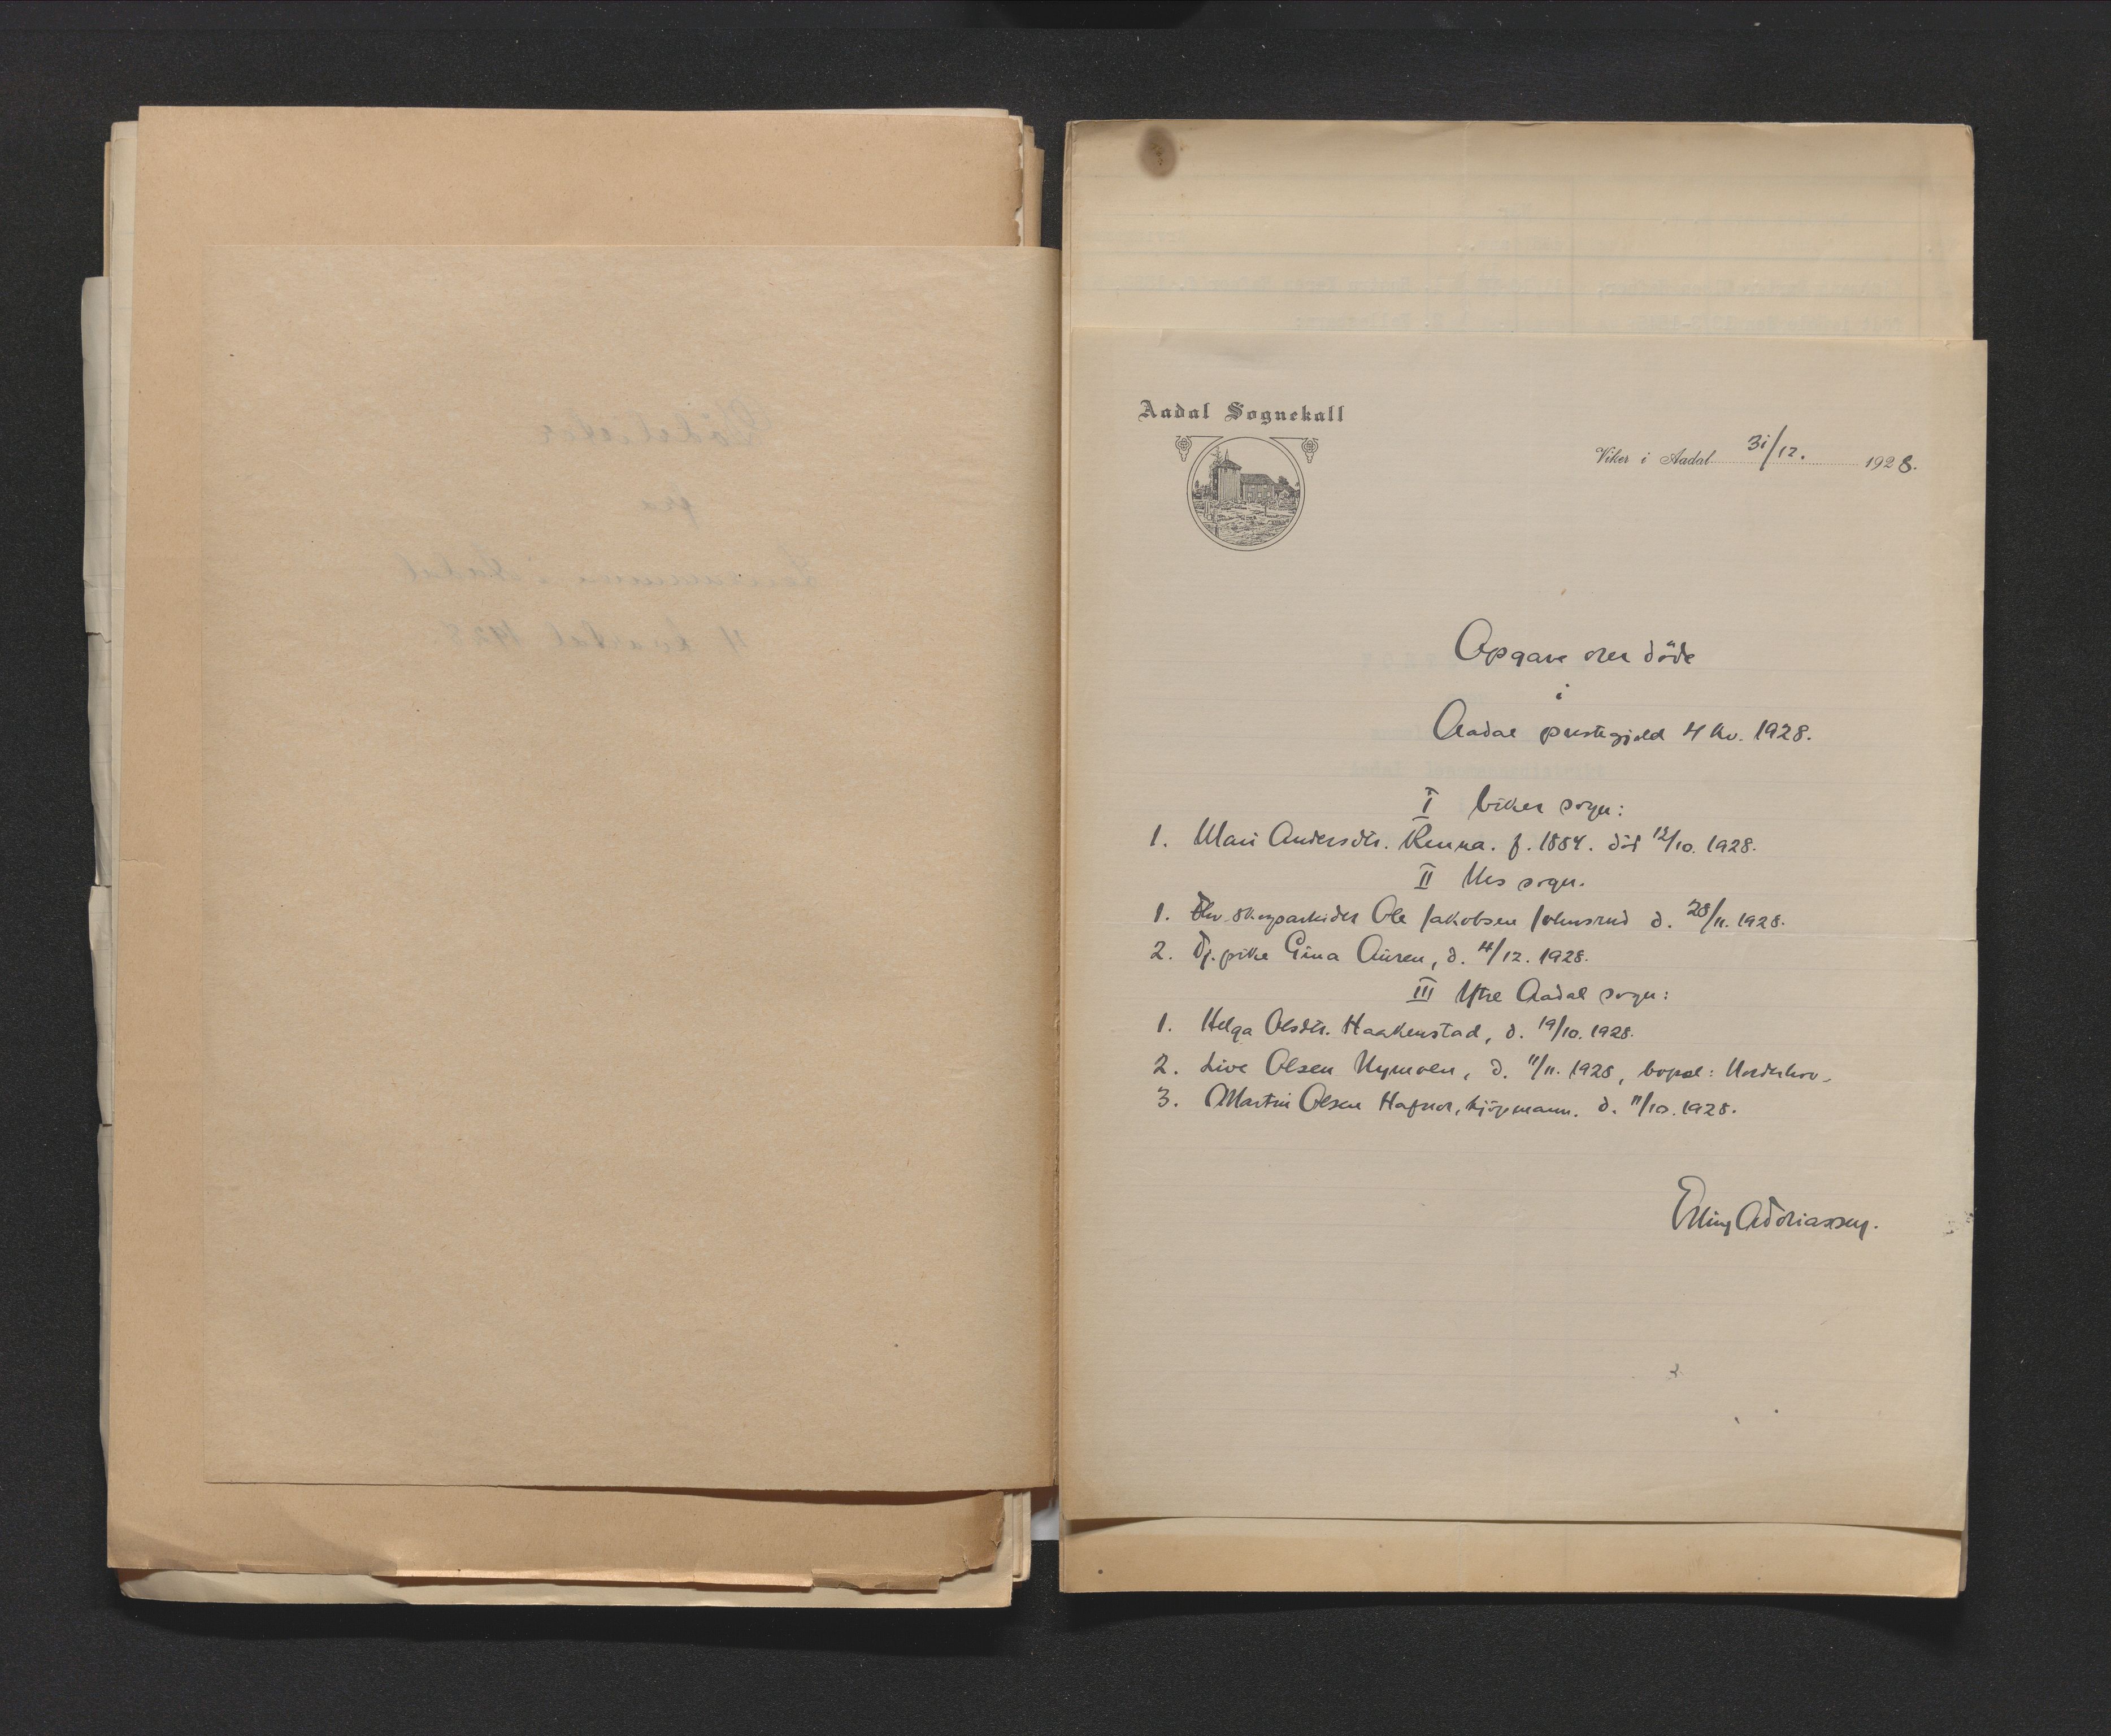 Aadal Sognekall
Viker i Aadal 31/12. 1928.
Opgave over döde
i
Aadal prestegjeld 4 kv. 1928.
I Viker sogn:
1. Mari Andersdtr. Renna. f. 1884. död 12/10. 1928.
II Nes sogn.
1. skogarbeider Ole Jakobsen Johnsrud d. 28/11. 1928.
2. Tj. pike Gina Aüren, d. 4/12. 1928.
III Ytre Aadal sogn:
1. Helga Olsdtr. Haakenstad, d. 19/10. 1928.
2. Live Olsen Nymoen, d. 11/11. 1928, bopæl: Norderhov.
3. Martin Olsen Hafnor, kjöpmann. d. 11/10. 1928.
Erling Adriassen.